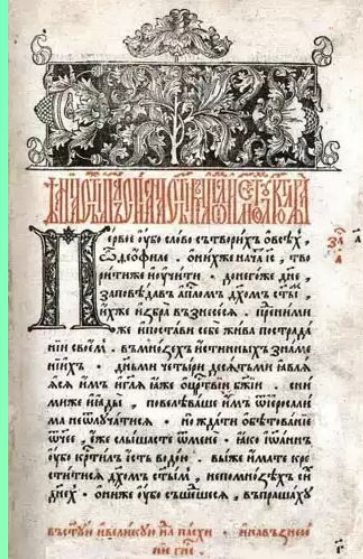 Первое ѹбо слово сътворихъ ѡвсѣхъ,
ѽѲеофиле. ѡнихже начатъ іс, тво
ритиже иѹчити. донегоже дне,
заповѣдавъ апⷭлом дх҃омъ ст҃ы,
ихже избра възнесеся. преднимиⷤ
же ипостави себе жива пострада
нїи своемъ. вмнозѣхъ истинныхъ знаме
нїихъ. дньми четыри десѧтьми явлѧ
ѧсѧ имъ иглѧ яже ѡцр҃твїи бж҃їи. сни
миже иꙗды, повелѣваше имъ ѿіерⷭ҇али
ма неѿлѹчатисѧ. но ждати обѣтованїѧ
ѿче, еже слышасте ѿмене. яко їѡаннъ
ѹбо крⷭ҇тилъ єсть водою. выже имате кре
ститисѧ дх҃омъ ст҃ымъ, непомнозѣхъ сиⷯ
днех. ониже ѹбо съшедшесѧ, въпрашахѹ